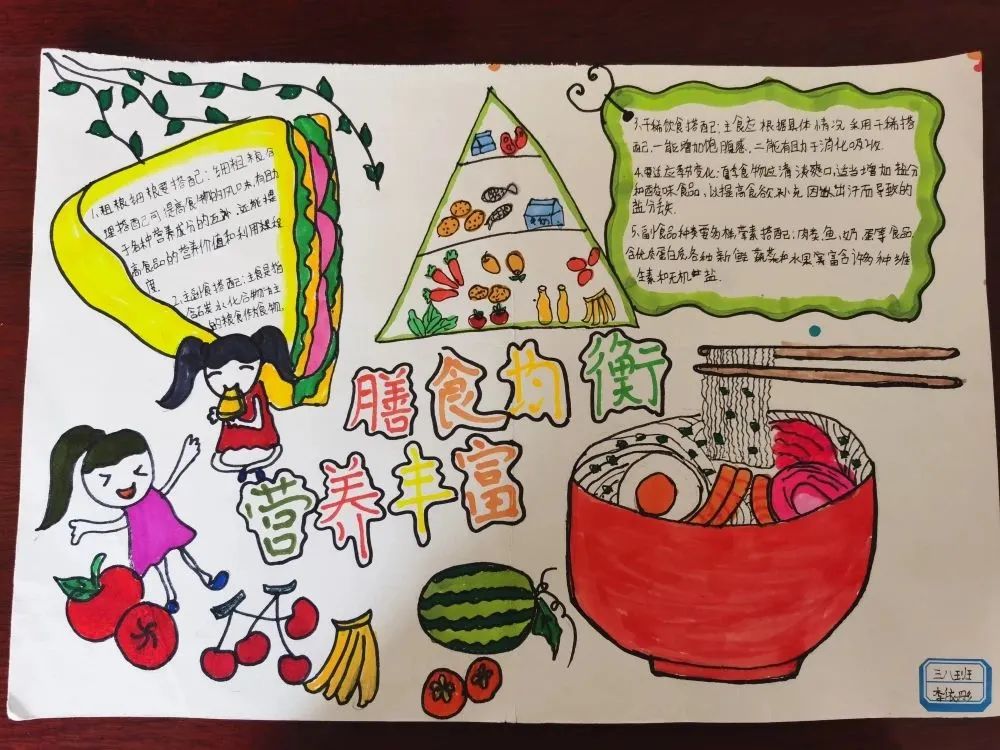 1.粗粮细粮要搭配:细粗粮合
理搭配可提高食物的风味,有助
于各种营养成分的互补,还能提
高食品的营养价值和利用程
度.
2.主副食搭配:主食是指
含碳水化合物为主
的粮食作食物.
3.干稀饮食搭配:主食应根据具体情况采用干稀搭
配,一能增加饱腹感,二能有助于消化吸收.
4.要适应季节变化:夏季食物应清淡爽口,适当增加盐分
和酸味食品,以提高食欲,补充因出汗而导致的
盐分丢失.
5.副食品种类要多样,营素搭配:肉类、鱼、奶、蛋等食品
含优质蛋白质各种新鲜蔬菜和水果富含多种维
生素和无机盐.
膳食均衡
营养丰富
三八班
李